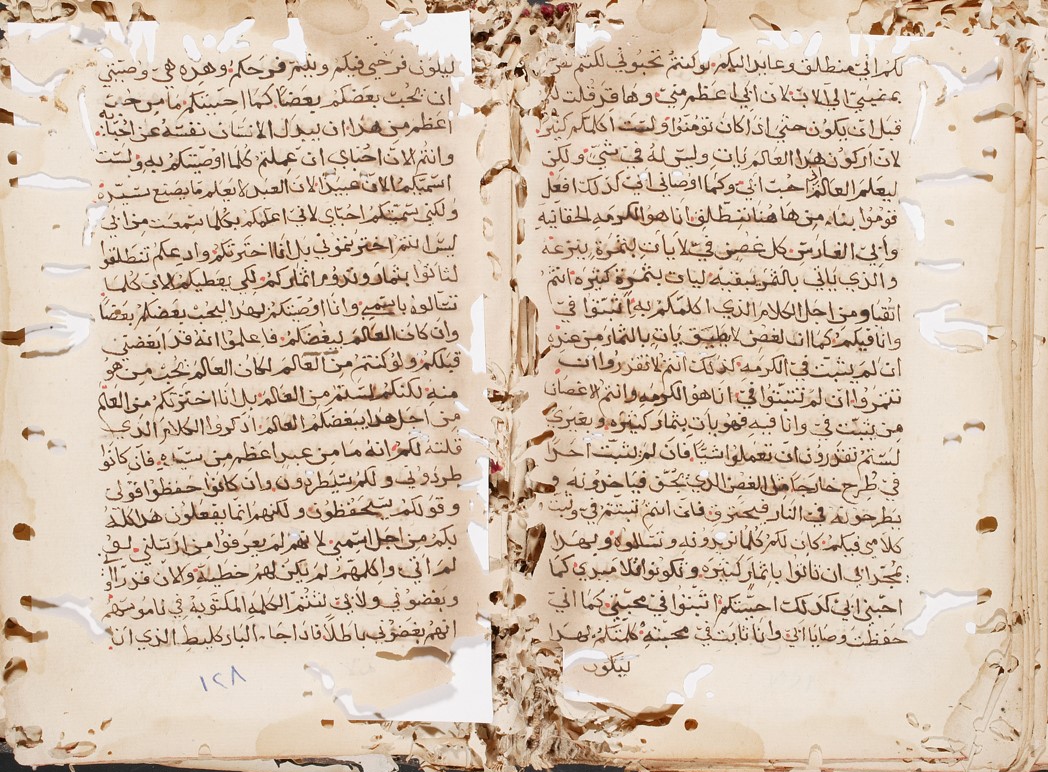 لكم اني منطلق وعايد اليكم ولو كنتم تحبوني لكنتم
بمضيي الي الاب لان ابي اعظم مني وها قد قلت
قبل ان يكون حتي اذا كان تومنوا ولست اكلمكم كثير
لان اركون هذا العالم يات وليس له في شي ولكن
ليعلم العالم احب ابي وكما اوصاني اب كذلك افعل
قوموا بناء من هاهنا ننطلق انا هو الكرمه الحقانيه
وابي الغارس كل غصن في لا يات بثمرة ينزعه
والذي ياتي بالثمر ينقيه ليات بثمره كثيره انتم
انقياء من اجل الكلام الذي اكلمكم به اثبتوا في
وانا فيكم كما ان الغصن لا يطيق يات بالثمار من عنده
ان لم يثبت في الكرمه كذلك انتم لا تقدروا ان
تثمروا ان لم تثبتوا في انا هو الكرمه وانتم الاغصان
من يثبت في وانا فيه فهو يات بثمار كثيره وبغيري
لستم تقدرون ان تعملوا شيًا فان لم يثبت احدا
في طرح خارجا مثل الغصن الذي يجف وياخذونه و
يطرحونه في النار فيحترق فان انتم ثبتتم في وثبت
كلامي فيكم كان لكم كلما تريدونه وتسالوه وبهذا
يمجد ابي ان تاتوا باثمار كثيره وتكونوا تلاميدي كما
احبني ابي كذلك احببتكم اثبتوا في محبتي كما اني
حفظت وصايا ابي وانا ثابت في محبته كلمتكم بهذا
ليكون
ليكون فرحي فيكم ويتم فرحكم وهذه هي وصيتي
ان يحب بعضكم بعضا كما احببتكم ما من حب
اعظم من هذا ان يبدل الانسان نفسه عن احباه
وانتم الان احباي ان عملتم كلما اوصيتكم به ولست
اسميكم الان عبيدا لان العبد لا يعلم ما يصنع سيده
ولكني سميتكم احباي لاني اعلمكم بكلما سمعت من ابي
ليس انتم اخترتموني بل انا اخترتكم وادعكم تنطلقوا
لتاتوا بثمار وتدوم اثماركم لكي يعطيكم الاب كلما
تسالوه باسمي وانا اوصيتكم بهذا ليحب بعضكم بعضا
وان كان العالم يبغضكم فاعلموا انه قد ابغضني
قبلكم ولو كنتم من العالم لكان العالم يحب من هو
منه لكنكم لستم من العالم بل انا اخترتكم من العالم
من اجل هذا يبغضكم العالم اذكروا الكلام الذي
قلته لكم انه ما من عبد اعظم من سيده فان كانوا
طردوني ولكم سيطردون وان كانوا حفظوا قولي
وقولكم سيحفظون ولكنهم انما يفعلون هذا كله
لكم من اجل اسمي لانهم لم يعرفوا من ارسلني لو
لم اتي واكلمهم لم تكن لهم خطيه والان قد راو
وبغضوني ولابي لتتم الكلمه المكتوبه في ناموسهم
انهم بغضوني باطلا فاذا جا البارقليط الذي انا
١٢٨